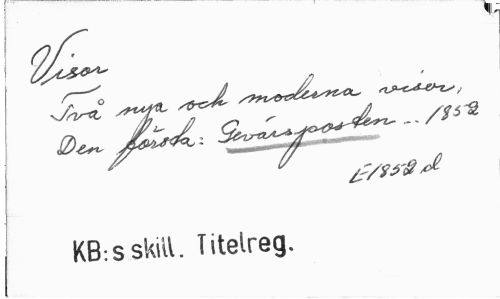 Visor
Två nya och moderna visor,
Den första: Gevärsposten... 1852
E1852 d
KB:s skill. Titelreg.